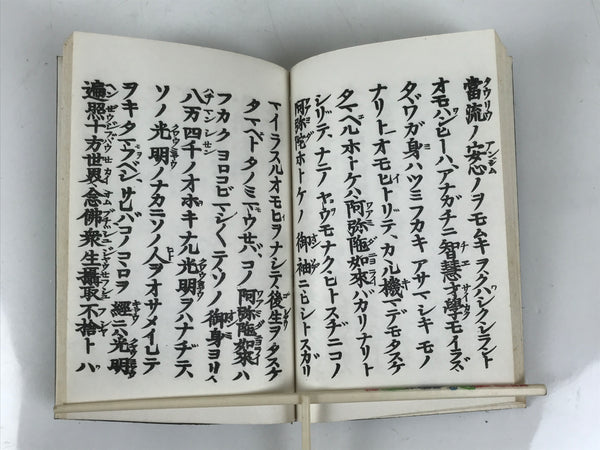 當流ノ安心ノヲモムキヲクハシクシラント
オモハンヒトハアナガチニ智慧才學モイラズ
タヾワガ身ハツミフカキアサマシキモノ
ナリトオモヒトリテ、カヽル機マデモタスケ
タマヘルホトケハ阿弥陀如來バカリナリト
シリテ、ナニノヤウモナクヒトスヂニコノ
阿弥陀ホトケノ御袖ニヒシトスガリ
マイラスルオモヒヲナシテ、後生ヲタスケ
タマヘトタノミマウセバ、コノ阿弥陀如來ハ
フカクヨロコビマシ〳〵テソノ御身ヨリ
八万四千ノオホキナル光明ヲハナチテ、
ソノ光明ノナカニソノ人ヲオサメイレテ
ヲキタマフベシサレバコノコヽロヲ經ニハ光明
遍照十方世界念佛衆生攝取不捨トハ